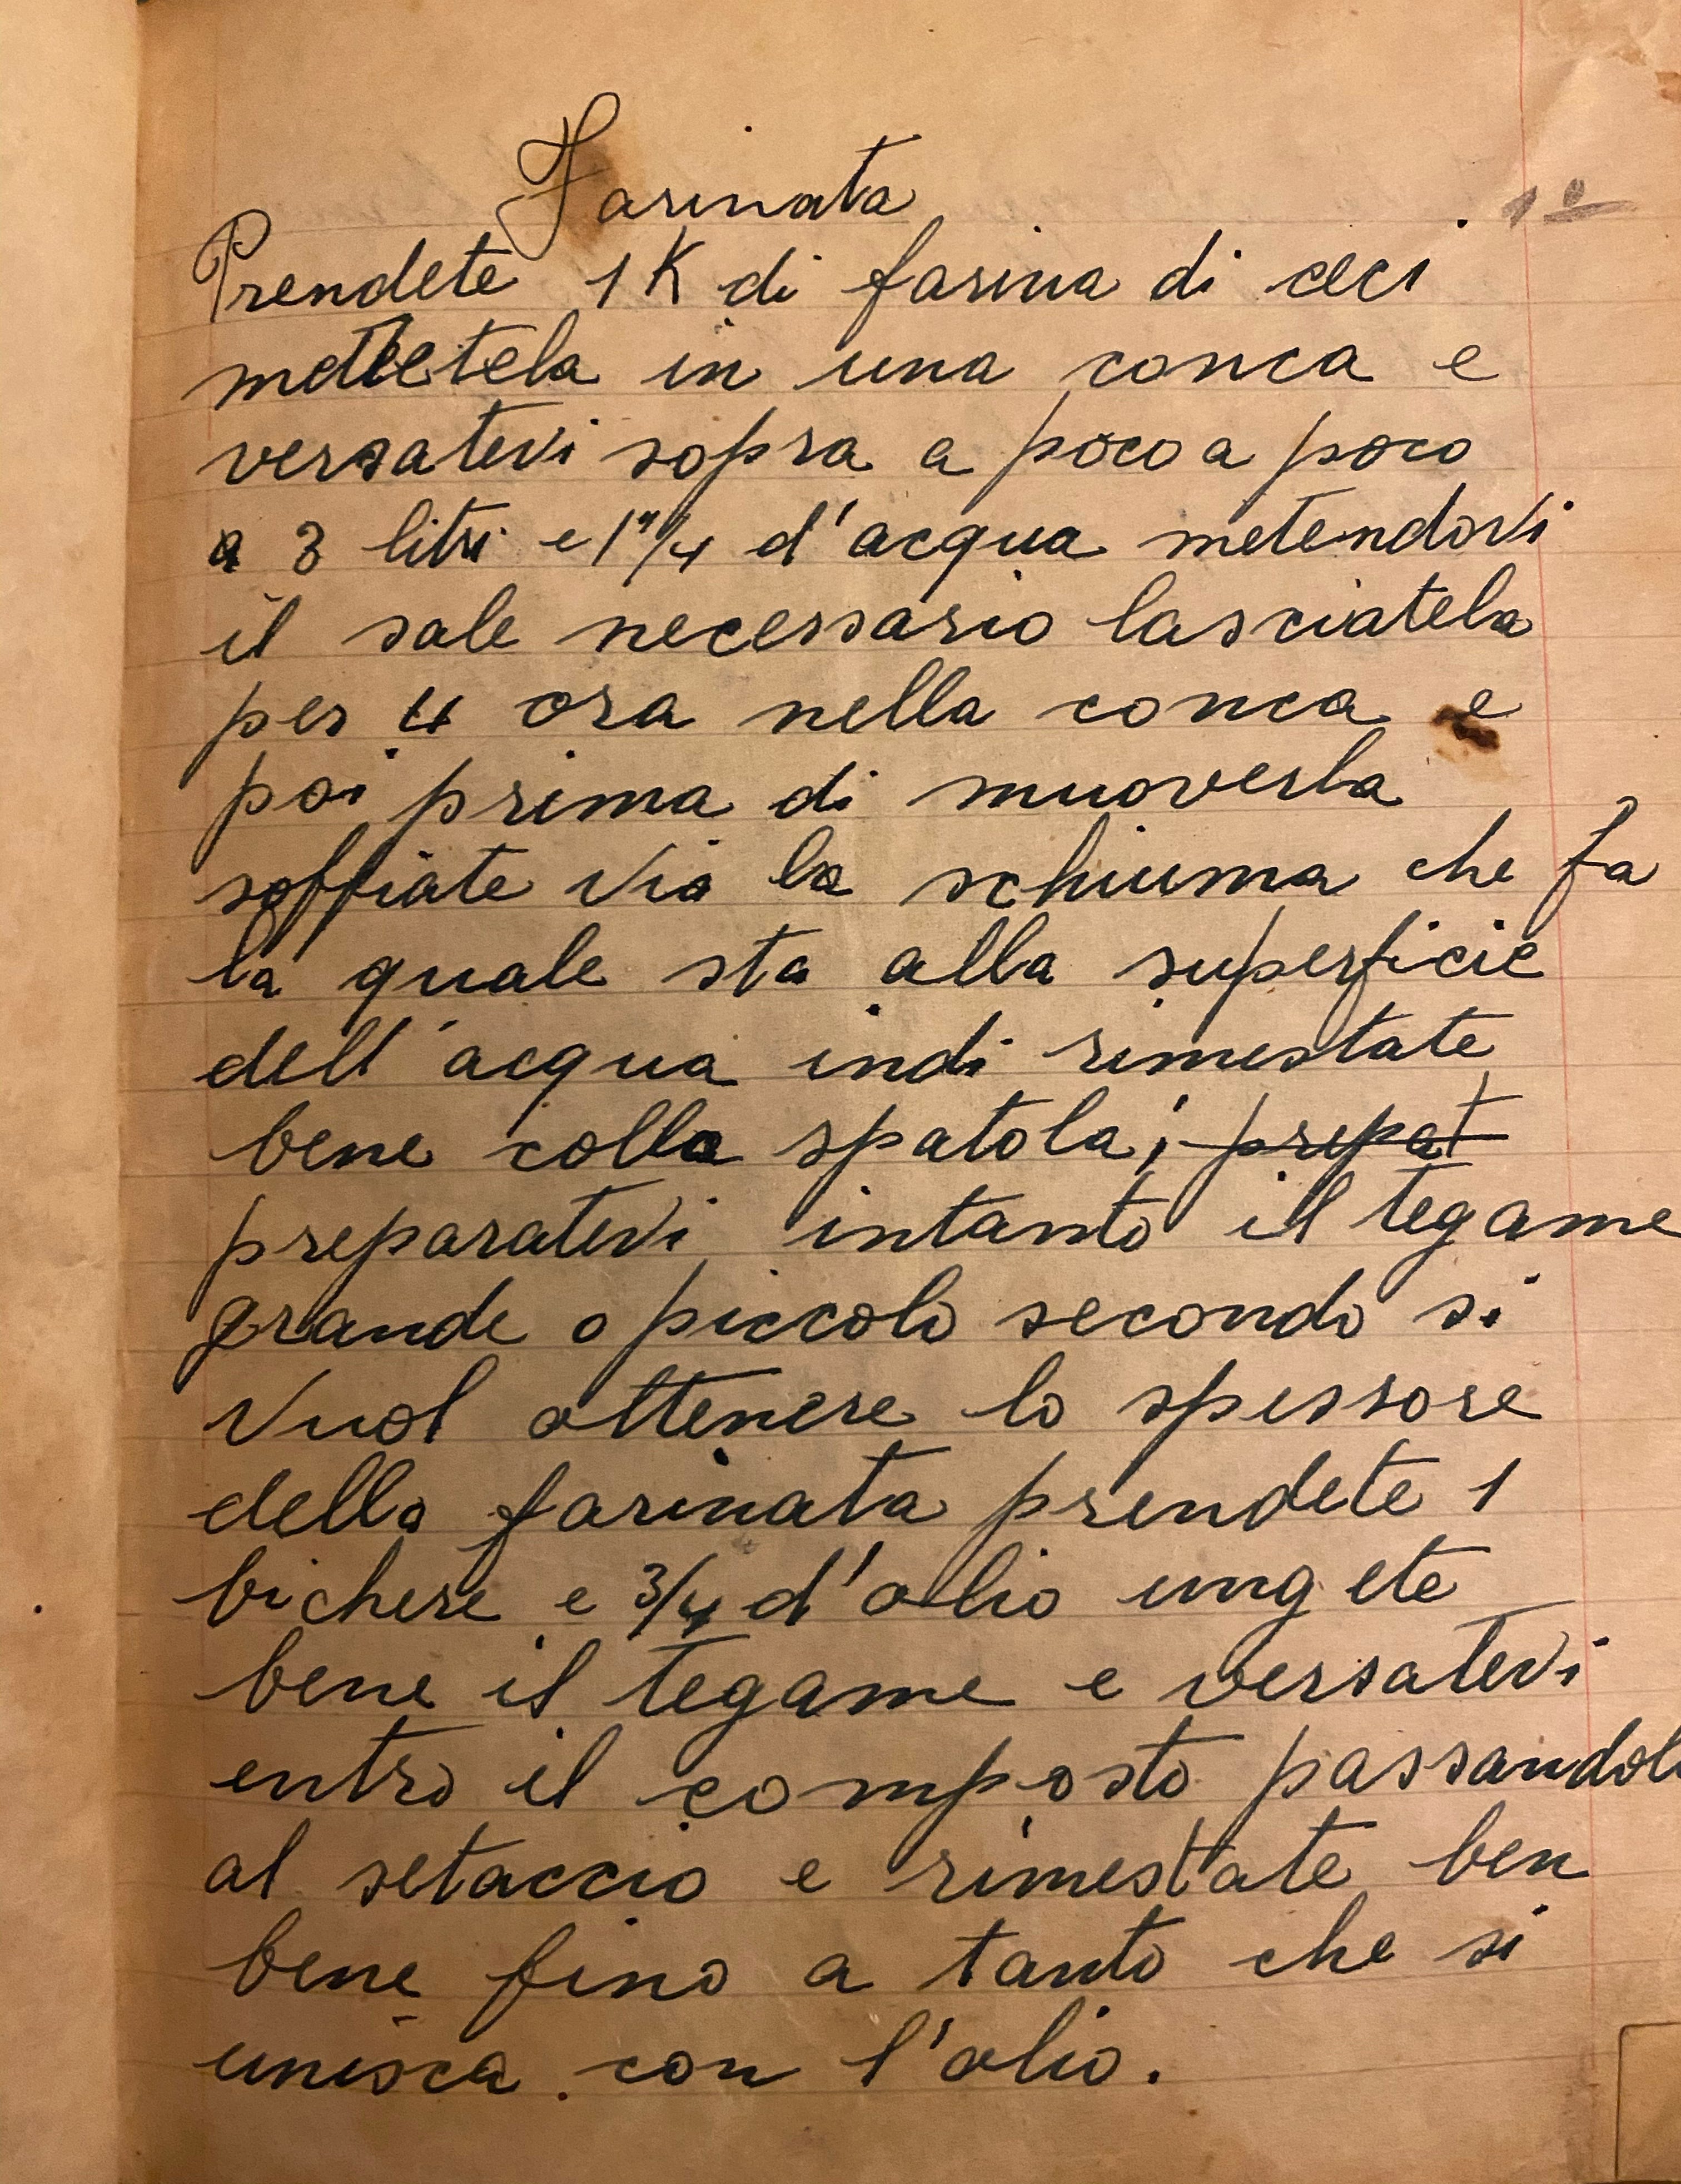 Farinata
1º
Prendete 1 K di farina di ceci
mettetela in una conca e
versatevi sopra a poco a poco
3 litri e 1/4 d'acqua metendovi
il sale necessario lasciatela
per 4 ora nella conca e
poi prima di muoverla
soffiate via la schiuma che fa
la quale sta alla superficie
dell'acqua indi rimestate
bene colla spatola; prepat
preparatevi intanto il tegame
grande o piccolo secondo si
vuol ottenere lo spessore
della farinata prendete 1
bichere e 3/4 d'olio ungete
bene il tegame e versatevi
entro il composto
al setaccio e rimestate ben
bene fino a tanto che si
unisca con l'olio.